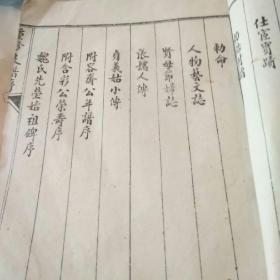 仕宦實蹟
勅命
人物藝文誌
賢母節婦誌
張孺人傳
貞義姑小傳
附容齋公年譜序
附含彩公榮壽序
魏氏先塋始祖碑序